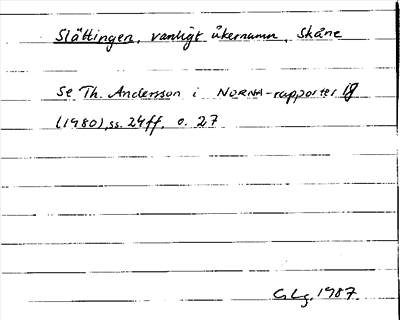 Slättingen, vanligt åkernamn, Skåne
Se Th. Andersson i NORNA-rapporter 18
(1980), ss. 24ff. o. 27
GLg. 1987.